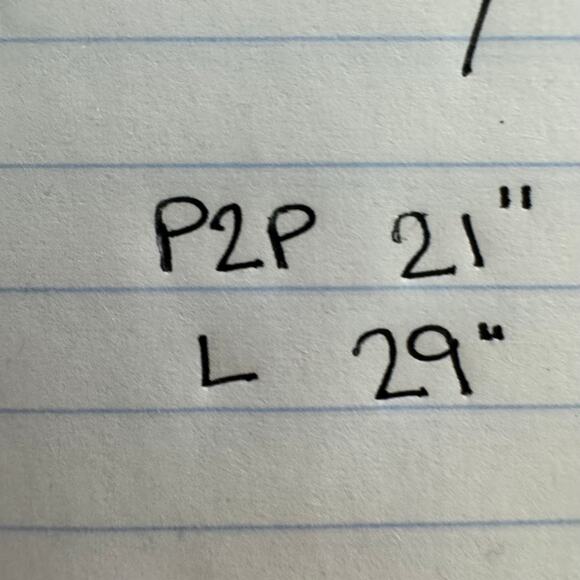 P2P 21"
L 29"